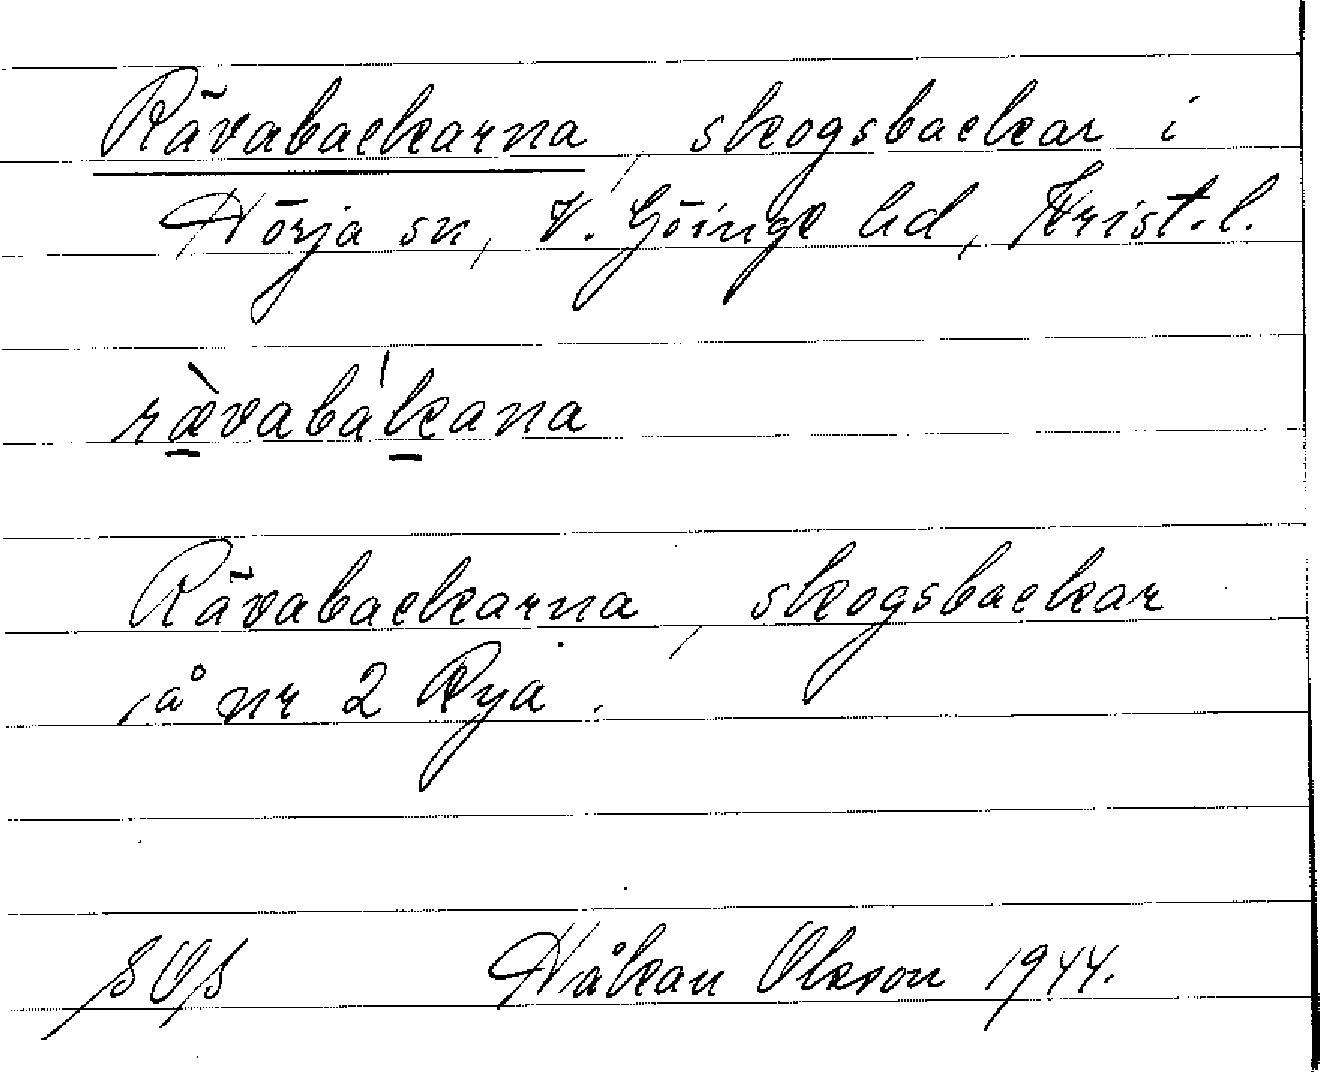 Rävabackarna, skogsbackar i
Nörja sn, V. Göinge hd, Krist. l.
rævabàkana
Rävabackarna, skogsbackar
å nr 2 Rya.
Håkan Olsson 1944.